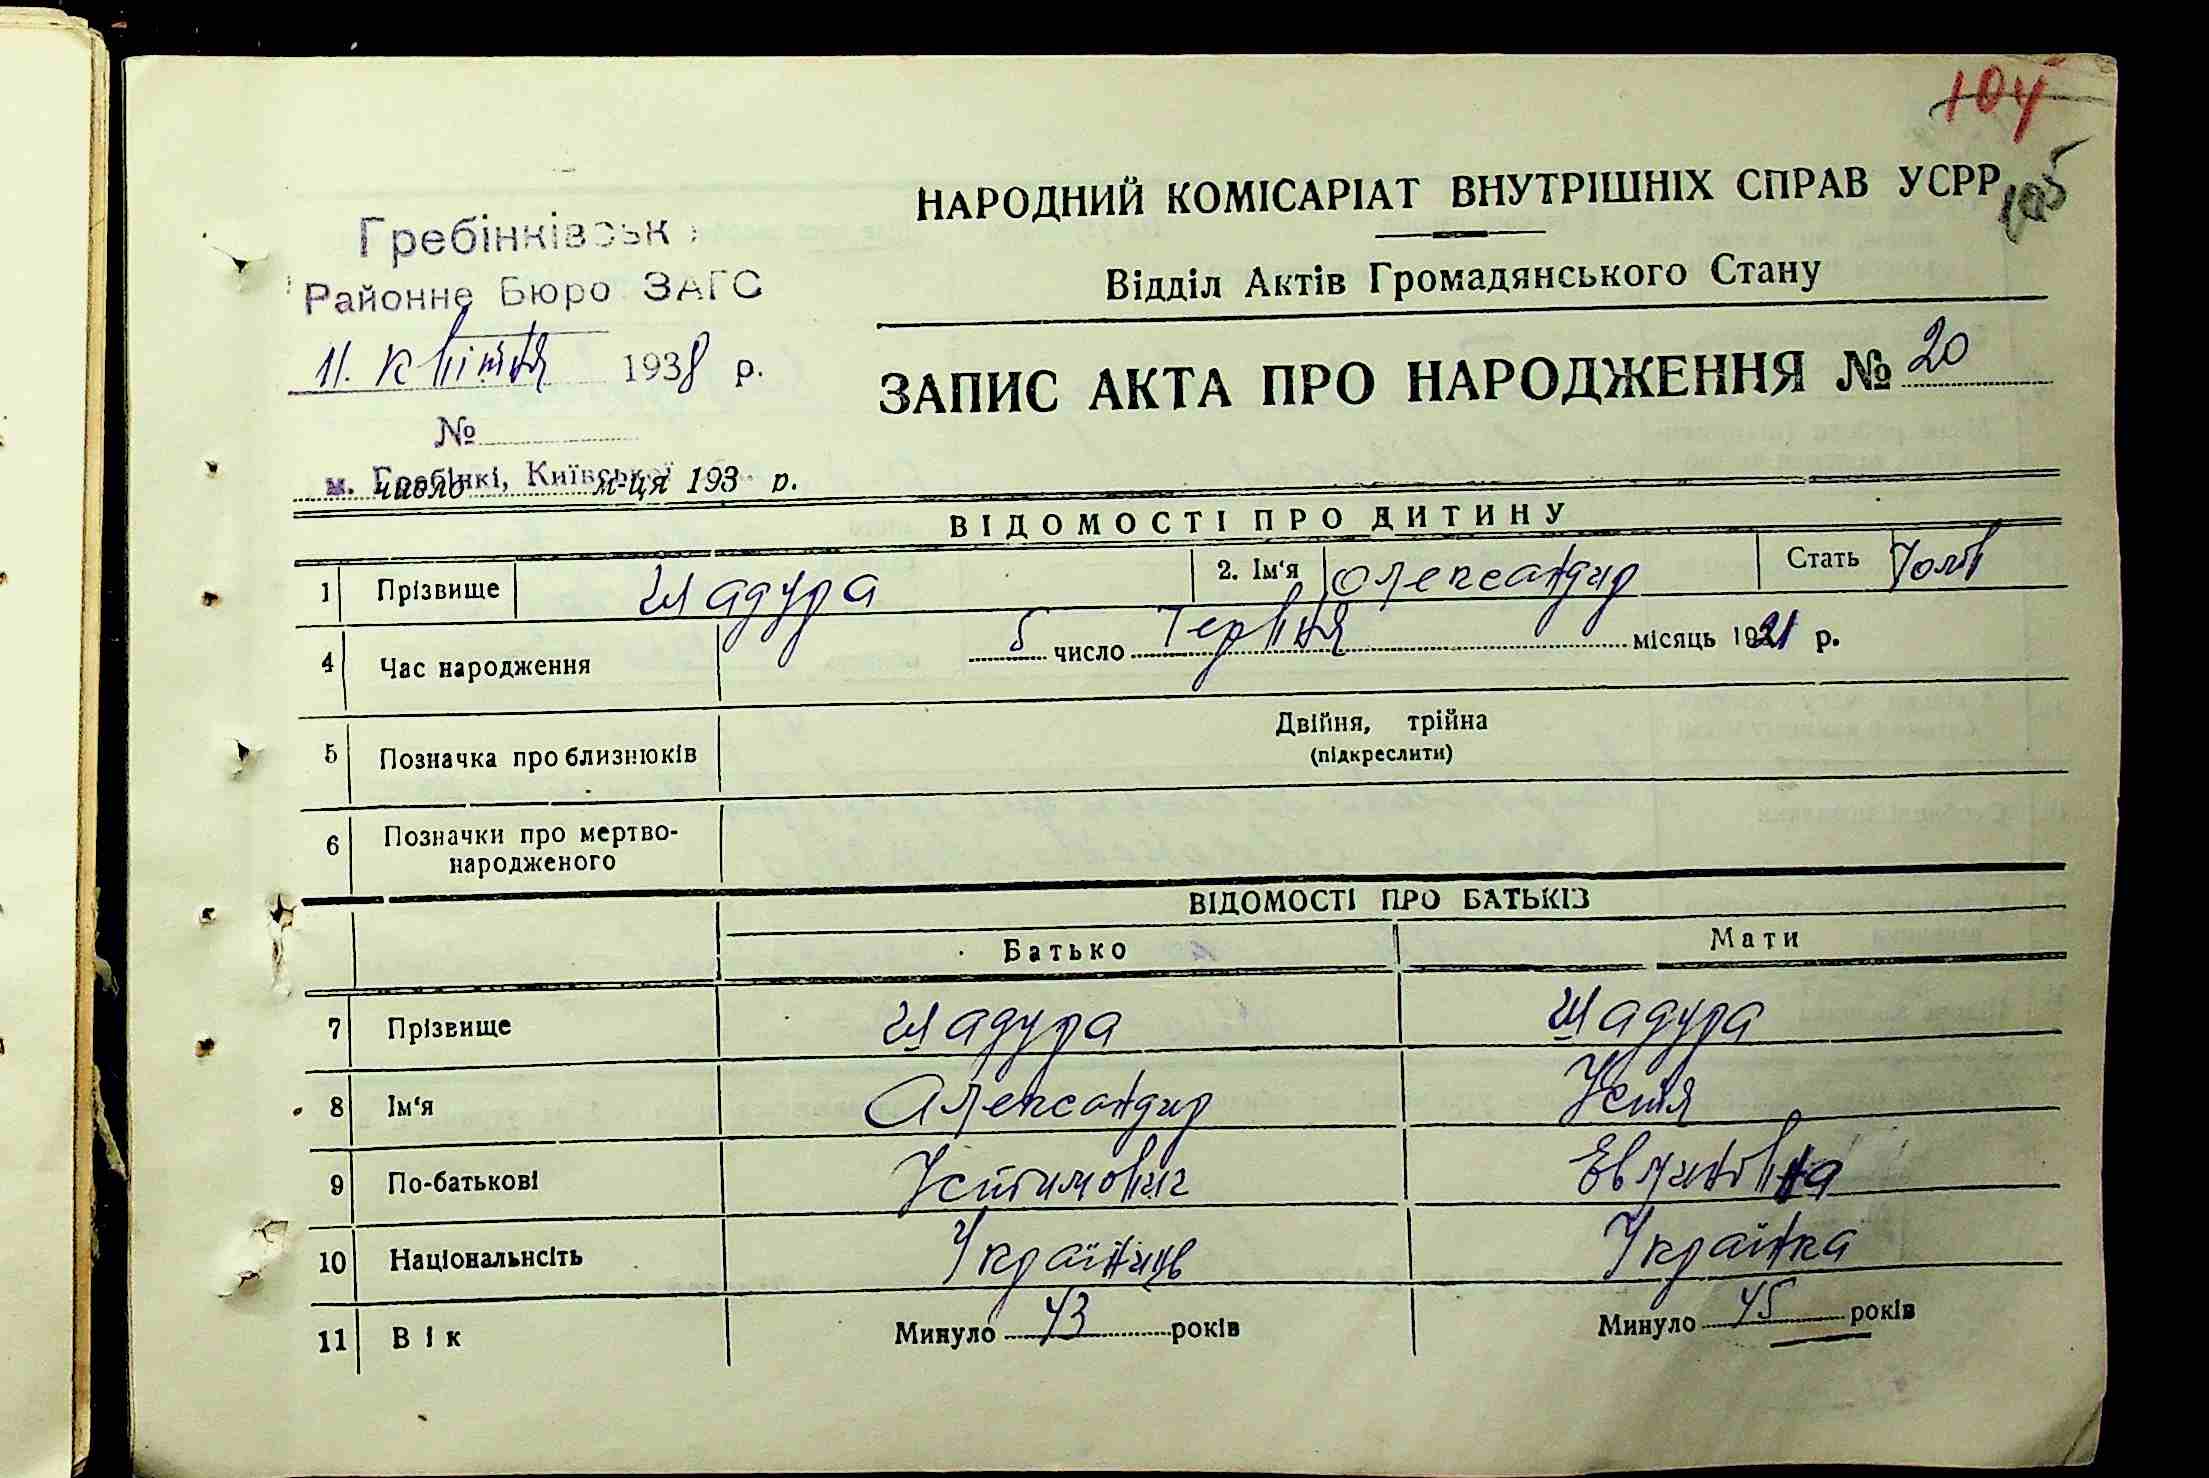 104
105
НАРОДНИЙ КОМІСАРІАТ ВНУТРІШНІХ СПРАВ УСРР
Відділ Актів Громадянського Стану
Гребінківськ
Районне Бюро ЗАГС
11. квітня 1938 р.
№
м. Гребінкі, Київської
число м-ця 193 р.
ЗАПИС АКТА ПРО НАРОДЖЕННЯ № 20
ВІДОМОСТІ ПРО ДИТИНУ
1 Прізвище Шадура 2. Ім'я Олександр Стать Чолов
4 Час народження 5 число Червня місяць 1921 р.
5 Позначка про близнюків Двійня, трійна
(підкреслити)
6 Позначки про мертво-
народженого
ВІДОМОСТІ ПРО БАТЬКІВ
Батько Мати
7 Прізвище Шадура Шадура
8 Ім'я Александр Устя
9 По-батькові Устимович
10 Національнсіть Українець Українка
11 Вік Минуло 43 років Минуло 45 років